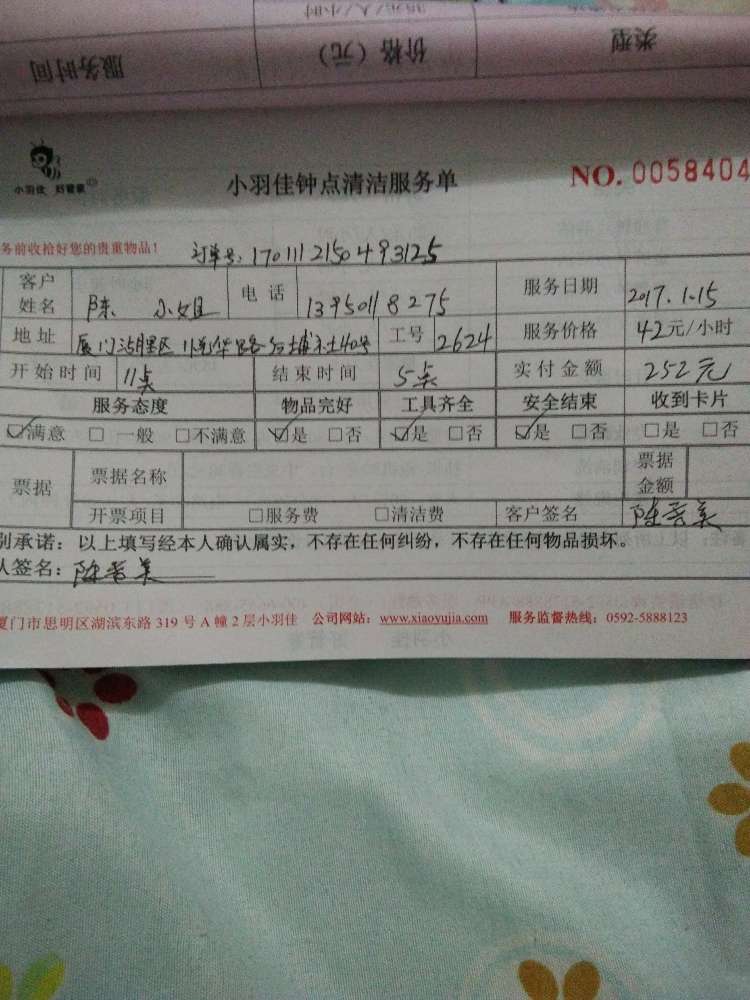 服务时间 价格（元） 类型
小羽佳 好管家
小羽佳钟点清洁服务单 NO. 0058404
务前收拾好您的贵重物品！ 订单号：1701112150493125
客户姓名 陈 小姐 电话 13950118275 服务日期 2017.1.15
地址 厦门湖里区 工号 2624 服务价格 42元/小时
开始时间 11点 结束时间 5点 实付金额 252元
服务态度 物品完好 工具齐全 安全结束 收到卡片
☑满意 □一般 □不满意 ☑是 □否 ☑是 □否 ☑是 □否 □是 □否
票据 票据名称 票据金额
开票项目 □服务费 □清洁费 客户签名
别承诺：以上填写经本人确认属实，不存在任何纠纷，不存在任何物品损坏。
人签名：
厦门市思明区湖滨东路 319 号 A 幢 2 层小羽佳 公司网站：www.xiaoyujia.com 服务监督热线：0592-5888123